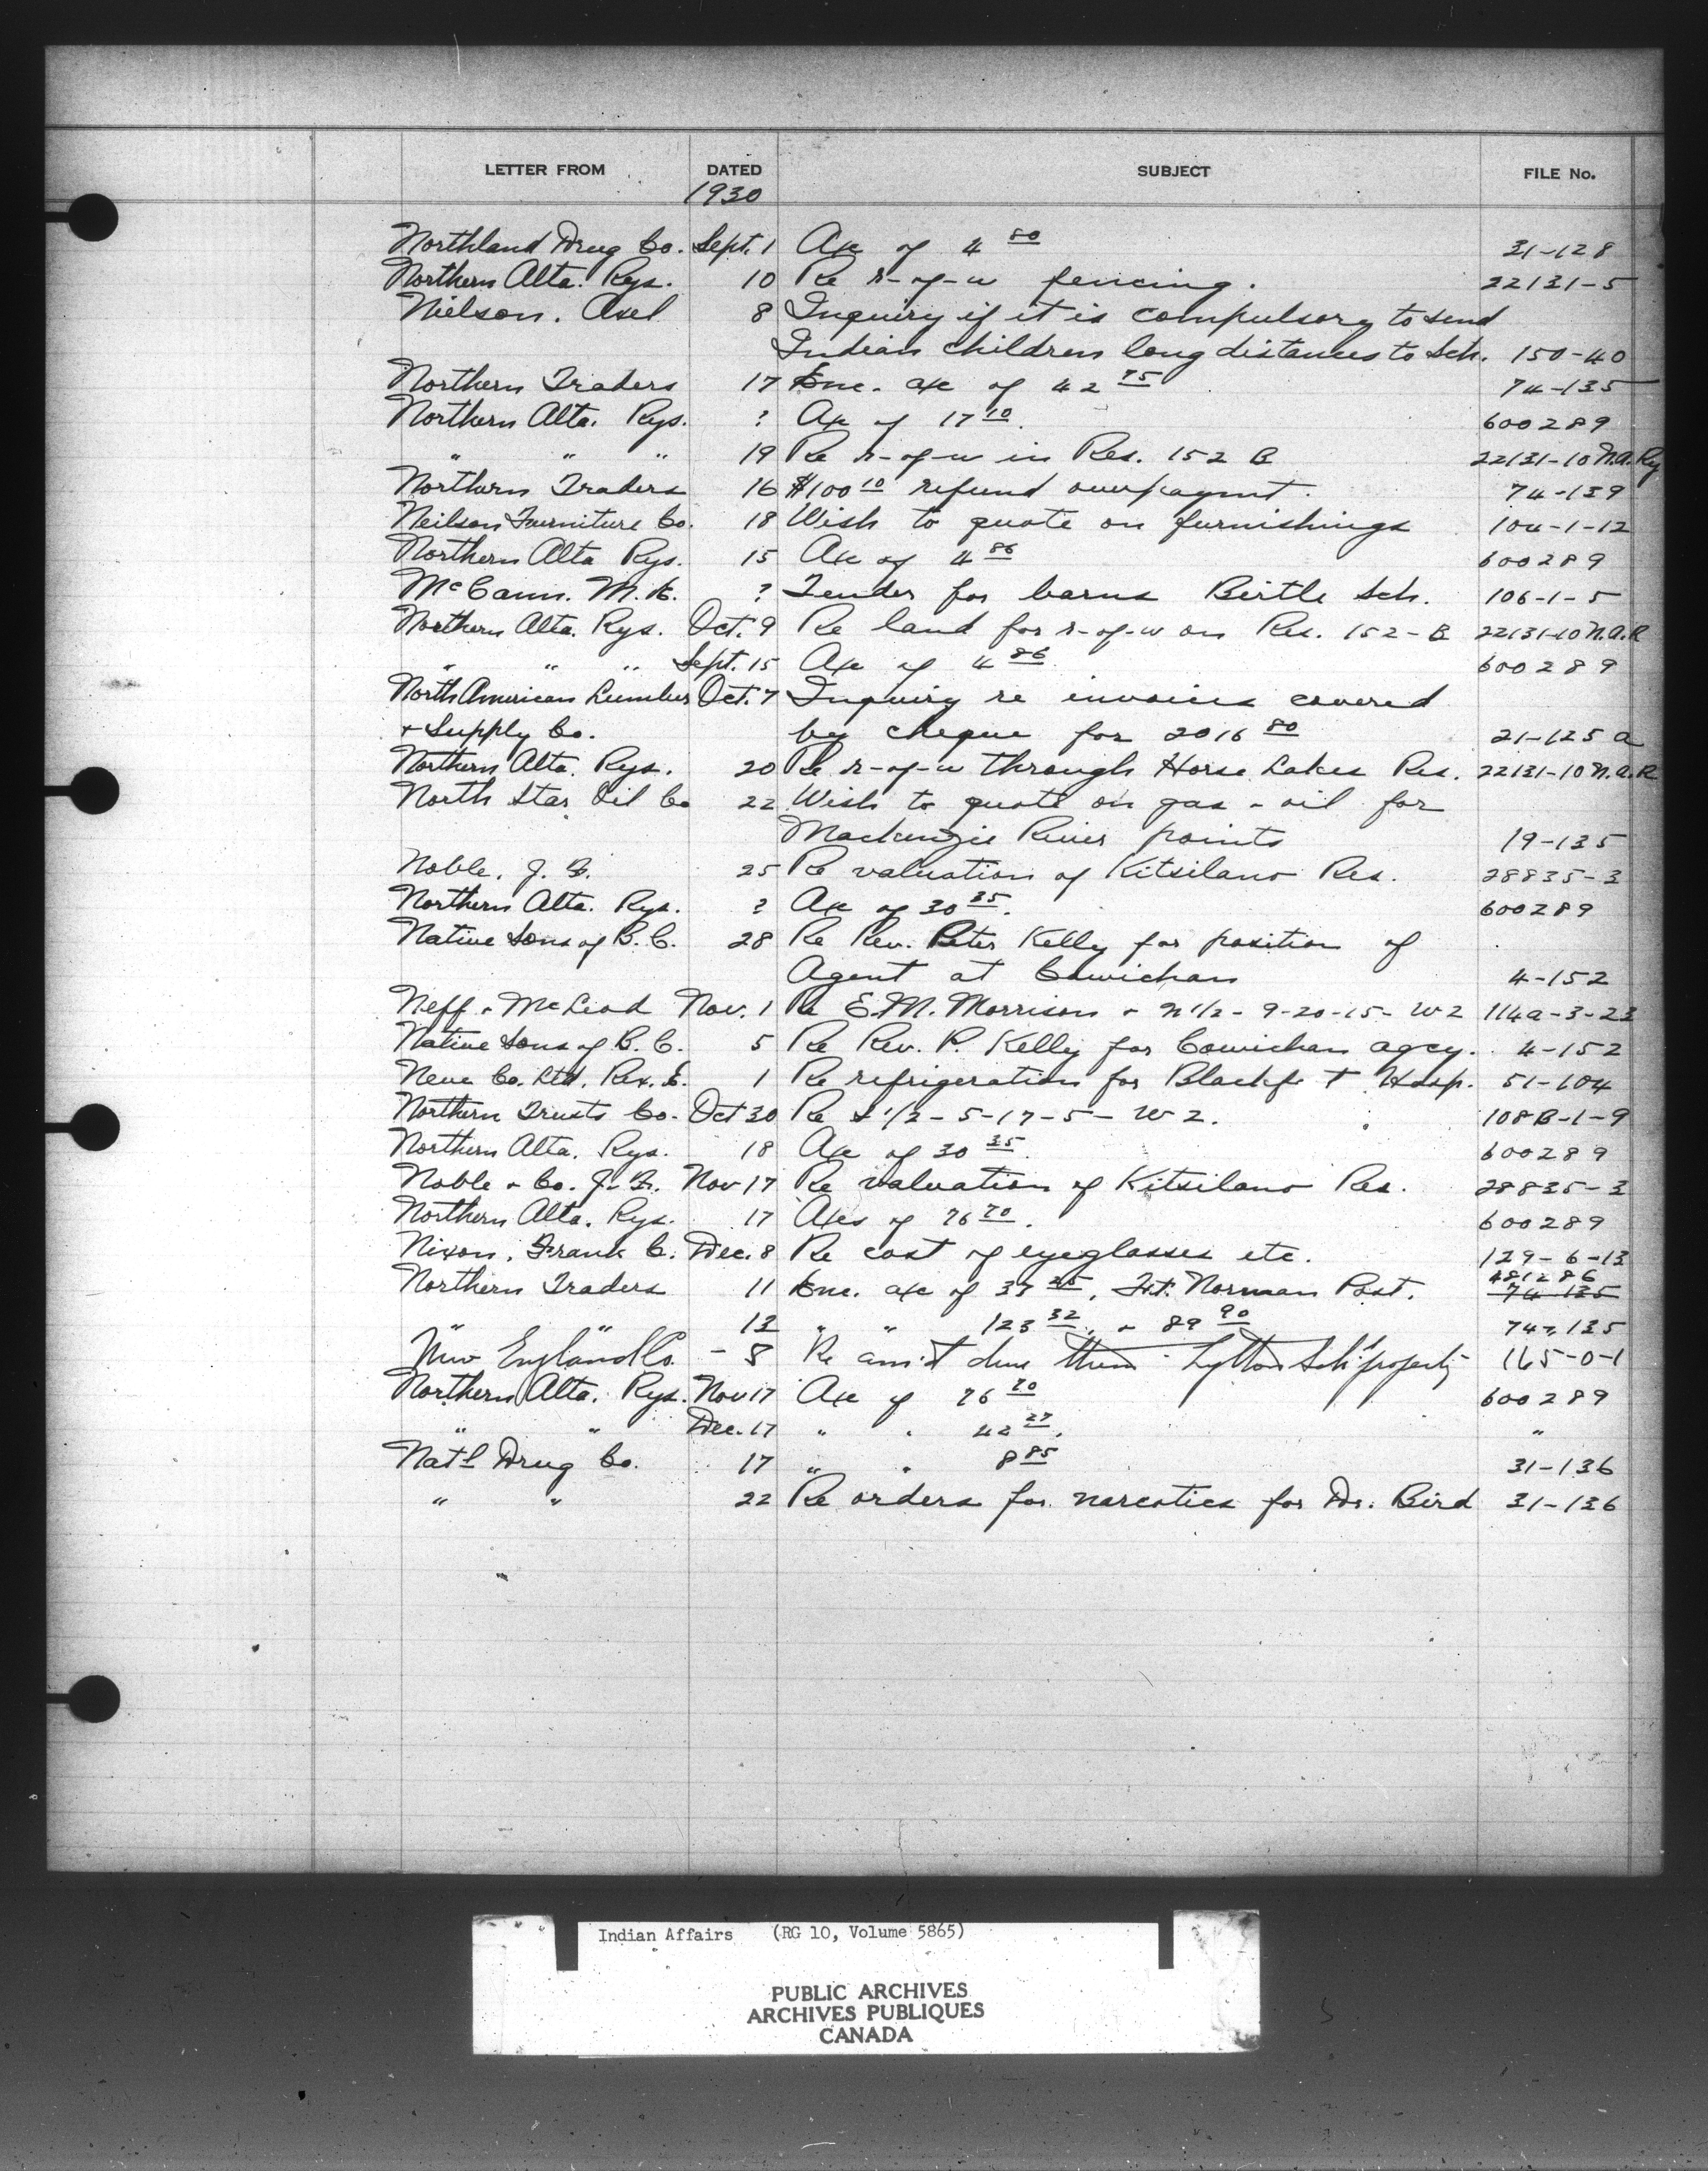 LETTER FROM DATED SUBJECT FILE No.
1930
Northland Drug Co. Sept. 1 A/c of 4 80 31-128
Northern Alta. Rys. 10 Re r-of-w fencing. 22131-5
Nielson, Axel 8 Inquiry if it is compulsory to send
Indian children long distances to Sch. 150-40
Northern Traders 17 Enc. a/c of 42 75 74-135
Northern Alta. Rys. ? A/c of 17 10. 600289
" " " 19 Re r-of-w in Res. 152 B 22131-10 N.A.Ry
Northern Traders 16 $100 10 refund overpaymt. 74-139
Neilson Furniture Co. 18 Wish to quote on furnishings 104-1-12
Northern Alta Rys. 15 A/c of 4 86 600289
McCann, M. ? Tender for barns Birtle Sch. 106-1-5
Northern Alta. Rys. Oct. 9 Re land for r-of-w on Res. 152-B 22131-10 N.A.R
" " " Sept. 15 A/c of 4 86 600289
North American Lumber Oct. 7 Inquiry re invoices covered
& Supply Co. by cheque for 2016 80 21-125 a
Northern Alta. Rys. 20 Re r-of-w through Horse Lakes Res. 22131-10 N.A.R
North Star Oil Co 22 Wish to quote on gas & oil for
Mackenzie River points 19-135
Noble, J. 25 Re valuation of Kitsilano Res. 28835-3
Northern Alta. Rys. ? A/c of 30 35. 600289
Native Sons of B.C. 28 Re Rev. Peter Kelly for position of
Agent at Cowichan 4-152
Neff & McLeod Nov. 1 Re E.M. Morrison & N 1/2 - 9-20-15- W2 114a-3-23
Native Sons of B.C. 5 Re Rev. P. Kelly for Cowichan agcy. 4-152
Neve Co. Ltd. Rex. 1 Re refrigeration for Blackfoot Hosp. 51-104
Northern Trusts Co. Oct 30 Re 1/2 - 5-17-5- W2. 108B-1-9
Northern Alta. Rys. 18 A/c of 30 35. 600289
Noble & Co. J. Nov 17 Re valuation of Kitsilano Res. 28835-3
Northern Alta. Rys. 17 A/cs of 76 70. 600289
Nixon, Frank C. Dec. 8 Re cost of eyeglasses etc. 129-6-13
481286
Northern Traders 11 Enc. a/c of 37, Ft. Norman Post. 74-135
" " 13 " " 123 32, & 89 90 74-135
New England Co. - 8 Re am't due them - Lytton Sch property 165-0-1
Northern Alta. Rys. Nov 17 A/c of 76 70 600289
" " Dec. 17 " " 42 27. "
Nat'l Drug Co. 17 " " 8 85 31-136
" " 22 Re orders for narcotics for Dr. Bird 31-136
Indian Affairs (RG 10, Volume 5865)
PUBLIC ARCHIVES
ARCHIVES PUBLIQUES
CANADA